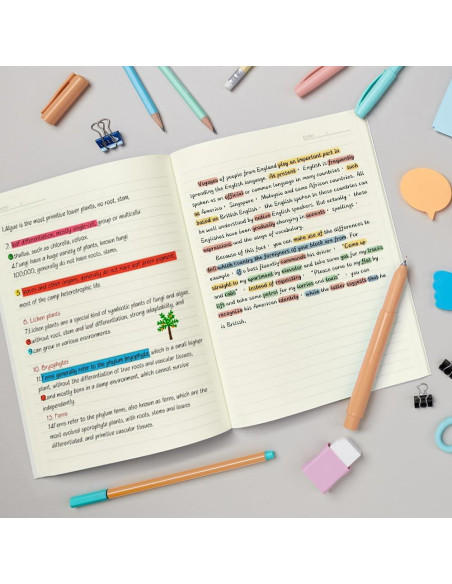 1.Algae is the most primitive lower plants, no root, stem,
2. leaf differentiation, mostly single cell, group or multicellu
thallus, such as chlorella, volvox.
4.Fungi have a huge variety of plants, known fungi
100,000, generally do not have roots, stems,
5. leaves and other organs, generally do not have leaf green pigment,
most of the camp heterotrophic life.
6. Lichen plants
7.Lichen plants are a special kind of symbiotic plants of fungi and algae,
without root, stem and leaf differentiation, strong adaptability, and
can grow in various environments.
10. Bryophytes
11. Ferns generally refer to the phylum bryophyta, which is a small higher
plant, without the differentiation of true roots and vascular tissues,
and mostly born in a damp environment, which cannot survive
independently.
13. Ferns
14Ferns refer to the phylum ferns, also known as ferns, which are the
most evolved sporophyte plants, with roots, stems and leaves
differentiated, and primitive vascular tissues.
Voyages of people from England play an important part in
spreading the English language. At present, English is frequently
spoken as an official or common language in many countries, such
as America, Singapore, Malaysia and some African countries. All
based on British English, the English spoken in these countries can
be well understood by native English speakers. But actually, these
Englishes have been gradually changing in accents, spellings,
expressions and the usage of vocabulary.
Because of this fact, you can make use of the differences to
tell which country the foreigners of your block are from. For
example, if a boss fluently commands his driver, "Come up
straight to my apartment by elevator and take some gas for my trucks
and cabs", instead of requesting, "Please come to my flat by
lift and take some petrol for my lorries and taxis", you can
recognize his American identity, while the latter suggests that he
is British.